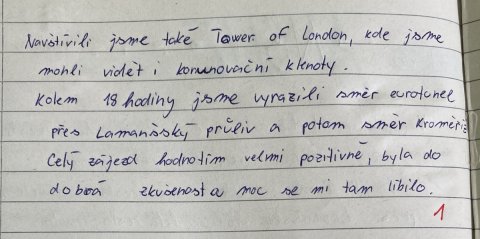 Navštívili jsme také Tower of London, kde jsme
mohli vidět i korunovační klenoty.
Kolem 18 hodiny jsme vyrazili směr eurotunel
přes Lamanšský průliv a potom směr Kroměříž
Celý zájezd hodnotím velmi pozitivně, byla do
dobrá zkušenost a moc se mi tam líbilo.
1